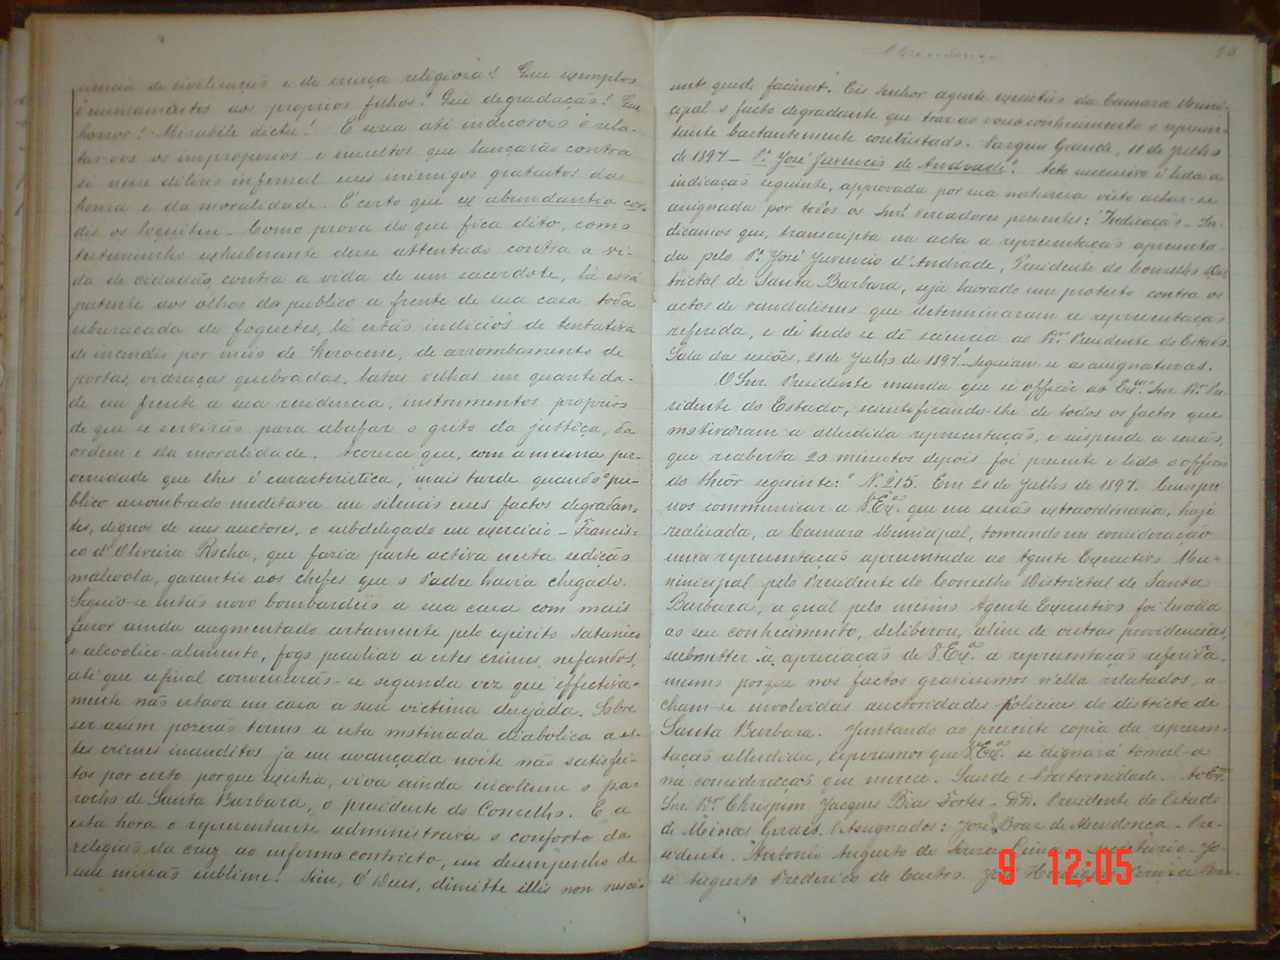 ancia de civilização e de crença religiosa! Que exemplos
emmanantes aos proprios filhos! Que degradação! Que
horror! Mirabile dictu! E seria até indecoroso o rela-
tar-vos os improperios e insultos que lançarão contra
si nesse delirio infernal esses inimigos gratuitos da
honra e da moralidade. É certo que ex abundantia cor-
dis os loquitur. Como prova do que fica dito, como
testemunho exhuberante desse attentado contra a vi-
da de cidadão, contra a vida de um sacerdote, lá está
patente aos olhos do publico a frente de sua casa toda
esburacada de foguetes, lá estão indicios de tentativa
de incendio por meio de kerosene, de arrombamento de
portas, vidraças quebradas, latas velhas em quantida-
de em frente a sua residencia, instrumentos proprios
de que se servirão para abafar o grito da justiça, da
ordem e da moralidade. Accresce que, com a mesma per-
versidade que lhes é caracteristica, mais tarde quando o pu-
blico assombrado meditava em silencio esses factos degradan-
tes, dignos de seus auctores, o subdelegado em exercicio - Francis-
co d'Oliveira Rocha, que fazia parte activa nesta sedição
malevola, garantio aos chefes que o Padre havia chegado.
Seguio-se então novo bombardeio a sua casa com mais
furor ainda augmentado certamente pelo espirito satanico
e alcoolico-alimento, fogo peculiar a estes crimes nefandos,
até que afinal convencerão-se segunda vez que effectiva-
mente não estava em casa a sua victima desejada. Sobre
ser assim pozerão termo a esta matinada diabolica a es-
tes crimes inauditos já em avançada noite não satisfei-
tos por certo porque existia, vivia ainda incolume o pa-
rocho de Santa Barbara, o presidente do Conselho. E a
esta hora o representante administrava o conforto da
religião da cruz ao enfermo contricto, em desempenho de
sua missão sublime! Sim, O' Deus, dimitte illis non nesci-
unt quid faciunt. Eis Senhor agente executivo da Camara Muni-
cipal o facto degradante que traz ao vosso conhecimento o represen-
tante bastantemente contristado. Vargem Grande, 11 de Julho
de 1897 - Pe. José Juvencio de Andrade". Acto successivo é lida a
indicação seguinte, approvada por sua natureza visto achar-se
assignada por todos os Snrs. vereadores presentes: "Indicação - In-
dicamos que, transcripta na acta a representação apresenta-
da pelo Pe. José Juvencio d'Andrade, Presidente do Conselho Dis-
trictal de Santa Barbara, seja lavrado um protesto contra os
actos de vandalismo que determinaram a representação
referida, e de tudo se dê sciencia ao Dr. Presidente do Estado.
Sala das sessões, 21 de Julho de 1897." Seguiam-se as assignaturas.
O Snr. Presidente manda que se officie ao Exmo. Snr. Dr. Pre-
sidente do Estado, scientificando-lhe de todos os factos que
motivaram a alludida representação, e suspende a sessão,
que reaberta 20 minutos depois foi presente e lido o officio
do theor seguinte: "N. 215. Em 21 de Julho de 1897. Cumpre-
nos communicar a V. Exa. que em sessão extraordinaria, hoje
realizada, a Camara Municipal, tomando em consideração
uma representação apresentada ao Agente Executivo Mu-
nicipal pelo Presidente do Conselho Districtal de Santa
Barbara, a qual pelo mesmo Agente Executivo foi levada
ao seu conhecimento, deliberou, alem de outras providencias,
submetter á apreciação de V. Exa. a representação referida,
mesmo porque nos factos gravissimos n'ella relatados, a-
cham-se envolvidas auctoridades policiaes do districto de
Santa Barbara. Juntando ao presente copia da represen-
tação alludida, esperamos que V. Exa. se dignará tomal-a
na consideração que merece. Saude e Fraternidade. Ao Exmo.
Snr. Dr. Chrispim Jacques Bias Fortes - DD. Presidente do Estado
de Minas Geraes. Assignados: José Braz de Mendonça - Pre-
sidente. Antonio Augusto de Souza Lima - secretario. Jo-
sé Augusto Frederico de Castro.
9 12:05